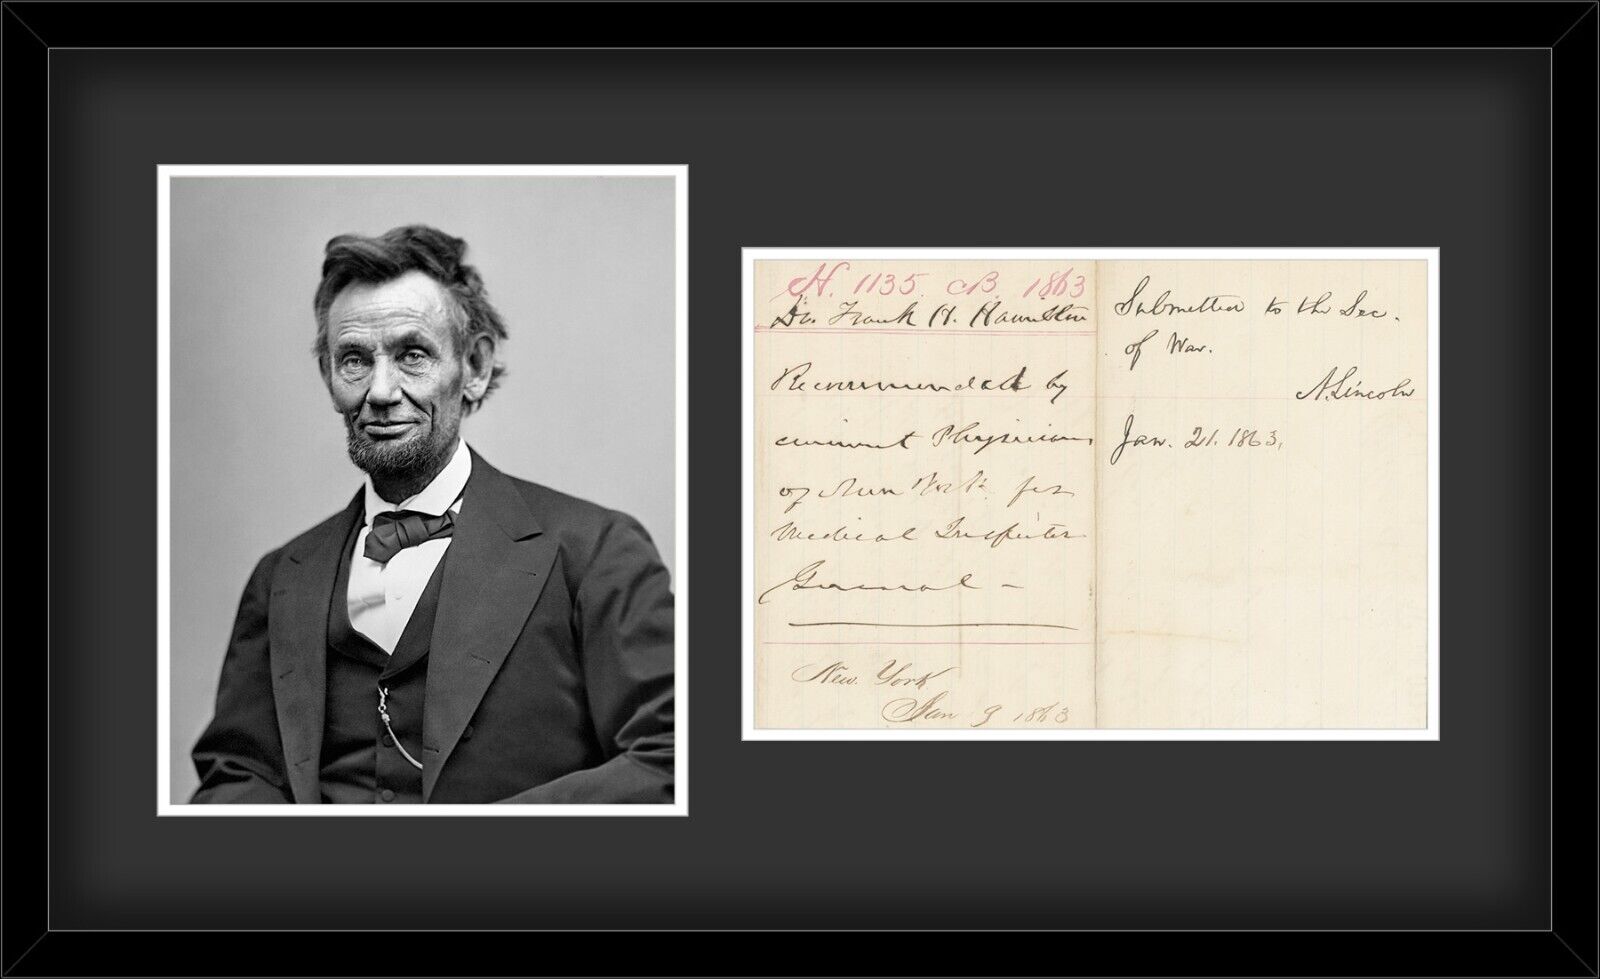 H. 1135 B. 1863
Dr. Frank H. Hamilton
Recommended by
eminent Physicians
of New York for
Medical Inspector
General –
New York
Jan 9 1863
Submitted to the Sec.
of War.
A. Lincoln
Jan. 21. 1863.